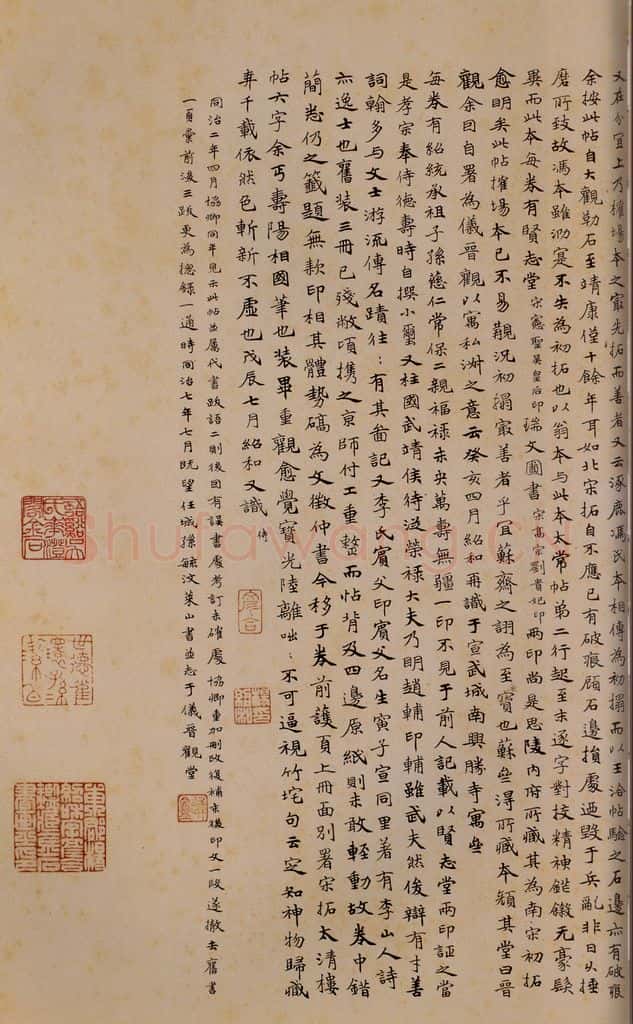 又在分宜上乃榷場本之最先拓而善者又云涿鹿馮氏本相傳為初搨而以王洽帖驗之石邊亦有破痕
余按此帖自大觀勒石至靖康僅十餘年耳如北宋拓自不應已有破痕顧石邊損處迺毀于兵亂非日久捶
磨所致故馮本雖泐蹇不失為初拓也以翁本與此本太常帖第二行起至末逐字對校精神鎚鍛无豪髮
異而此本每券有賢志堂宋憲聖吳皇后印瑞文圖書宋高宗劉貴妃印兩印尚是思陵內府所藏其為南宋初拓
愈明矣此帖榷場本已不易覯況初搨最善者乎宜蘇齋之詡為至寶也蘇壘得所藏本額其堂曰晉
觀余因自署為儀晉觀以寓私淑之意云癸亥四月紹和再識于宣武城南興勝寺寓壘
每券有紹統承祖子孫慈仁常保二親福祿未央萬壽無疆一印不見于前人記載以賢志堂兩印証之當
是孝宗奉侍德壽時自撰小璽又柱國武靖侯待溢榮祿大夫乃明趙輔印輔雖武夫然俊辯有才善
詞翰多与文士游流傳名蹟往：有其圖記又李氏賓父印賓父名生寅子宣同里著有李山人詩
亦逸士也舊装三冊已殘敝頃攜之京師付工重整而帖背及四邊原紙則未敢輕動故券中錯
簡悉仍之籤題無款印相其體勢碻為文徵仲書今移于券前護頁上冊面別署宋拓太清樓
帖六字余丐壽陽相國筆也装畢重觀愈覺寶光陸離咄：不可逼視竹垞句云定知神物歸藏
弆千載依然色斬新不虛也戊辰七月紹和又識
同治二年四月協卿同年見示此帖並屬代書跋語二則後因有誤書處考訂未確處協卿重加刪改復補末樣印文一段遂撤去舊書
一頁彙前後三跋更為捴錄一通時同治七年七月既望任城孫毓汶萊山書並志于儀晉觀堂
Shufawang.cn